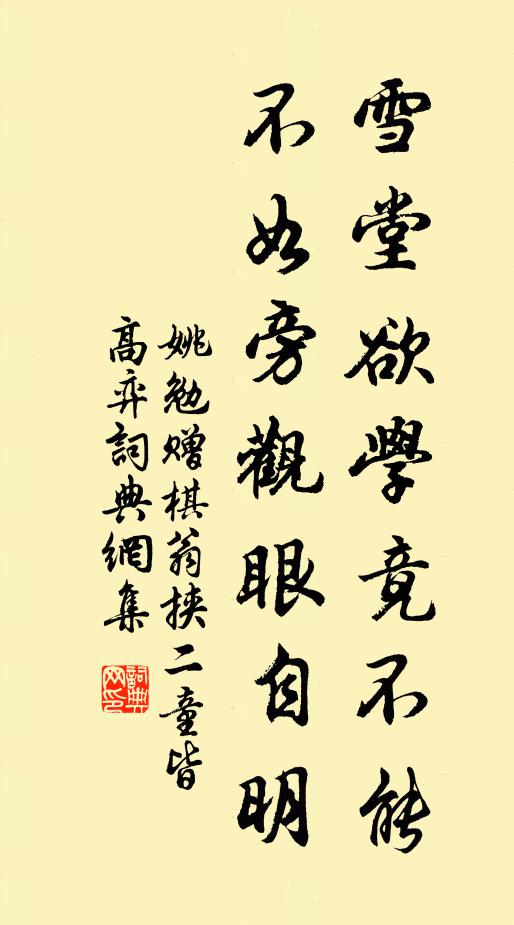 雪堂欲學竟不能
不如旁觀眼自明
姚勉贈棋翁挾二童皆
高弈詞典網集
詞典網印